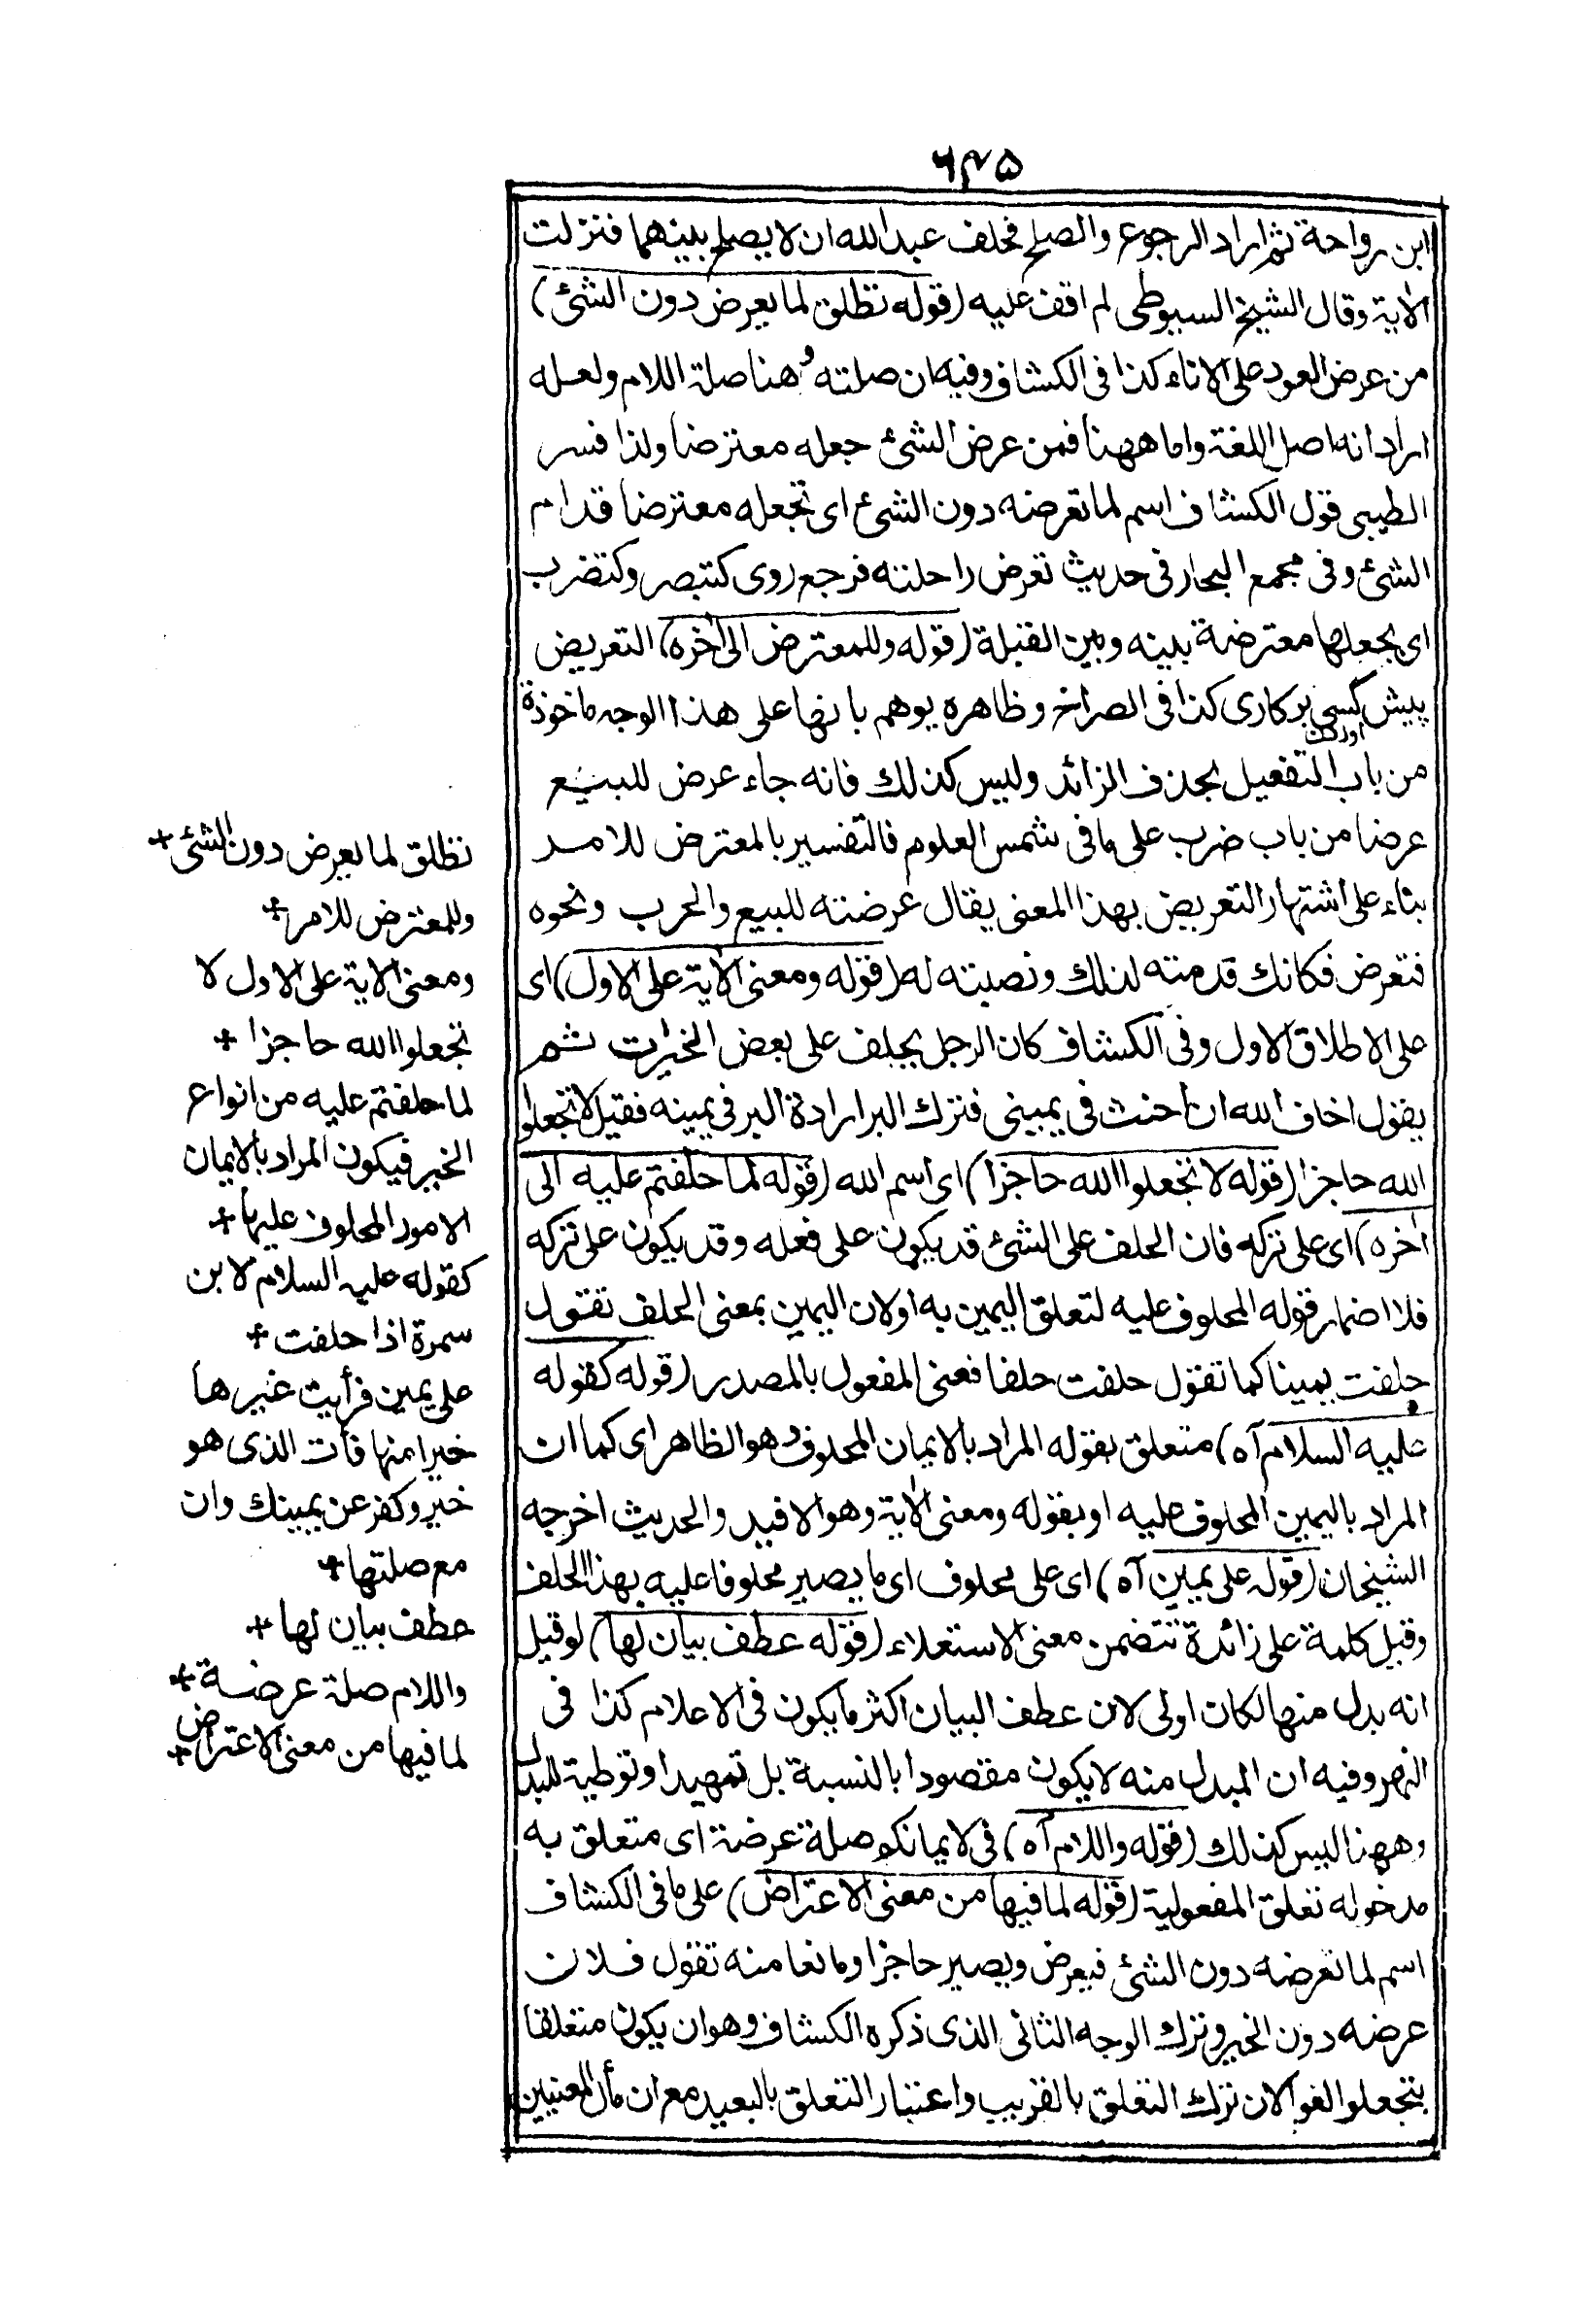 ۶۴۵
ابن رواحة ثم اراد الرجوع والصلح فحلف عبدالله ان لا يصلح بينهما فنزلت
الاٰية وقال الشيخ السيوطى لم اقف عليه (قوله تطلق لما يعرض دون الشئ)
من عرض العود على الاناء كذا فى الكشاف وفيه ان صلته وهنا صلة اللام ولعله
اراد انه اصل اللغة واما ههنا فمن عرض الشئ جعله معترضا ولذا فسر
الطيبى قول الكشاف اسم لما تعرضه دون الشئ اى تجعله معترضا قدام
الشئ وفى مجمع البحار فى حديث تعرض راحلته فرجع روى كتبصر وكتضرب
اى يجعلها معترضة بينه وبين القبلة (قوله وللمعترض الى اٰخره) التعريض
پيش كسى بر كارى كذا فى الصراح وظاهره يوهم بانها على هذا الوجه ماخوذة
اوردن
من باب التفعيل بحذف الزائد وليس كذلك فانه جاء عرض للبيع
عرضا من باب ضرب على ما فى شمس العلوم فالتفسير بالمعترض للامر
بناء على اشتهار التعريض بهذا المعنى يقال عرضته للبيع والحرب ونحوه
فتعرض فكانك قدمته لذلك ونصبته له (قوله ومعنى الاٰية على الاول) اى
على الاطلاق الاول وفى الكشاف كان الرجل يحلف على بعض الخيرات ثم
يقول اخاف الله ان احنث فى يمينى فترك البر ارادة البر فى يمينه فقيل لا تجعلوا
الله حاجزا (قوله لا تجعلوا الله حاجزا) اى اسم الله (قوله لما حلفتم عليه الى
اٰخره) اى على تركه فان الحلف على الشئ قد يكون على فعله وقد يكون على تركه
فلا اضمار قوله المحلوف عليه لتعلق اليمين به اولان اليمين بمعنى الحلف تقول
حلفت يمينا كما تقول حلفت حلفا فعنى المفعول بالمصدر (قوله كقوله
عليه السلام آه) متعلق بقوله المراد بالايمان المحلوف وهو الظاهر اى كما ان
المراد باليمين المحلوف عليه او بقوله ومعنى الاٰية وهو الافيد والحديث اخرجه
الشيخان (قوله على يمين آه) اى على محلوف اى ما يصير محلوفا عليه بهذا الحلف
وقيل كلمة على زائدة تتضمن معنى الاستعلاء (قوله عطف بيان لها) لو قيل
انه بدل منها لكان اولى لان عطف البيان اكثر ما يكون فى الاعلام كذا فى
النهر وفيه ان المبدل منه لا يكون مقصودا بالنسبة بل تمهيدا وتوطية للبدل
وههنا ليس كذلك (قوله واللام آه) فى لايمانكم صلة عرضة اى متعلق به
مدخوله تعلق المفعولية (قوله لما فيها من معنى الاعتراض) على ما فى الكشاف
اسم لما تعرضه دون الشئ فيعرض ويصير حاجزا ومانعا منه تقول فلان
عرضه دون الخير وترك الوجه الثانى الذى ذكره الكشاف وهو ان يكون متعلقا
بتجعلوا لغوا لان ترك التعلق بالقريب واعتبار التعلق بالبعيد مع ان مأل المعنيين
تطلق لما يعرض دون الشئ +
وللمعترض للامر +
ومعنى الاية على الاول لا
تجعلوا الله حاجزا +
لما حلفتم عليه من انواع
الخير فيكون المراد بالايمان
الامور المحلوف عليها +
كقوله عليه السلام لابن
سمرة اذا حلفت +
على يمين فرأيت غيرها
خيرا منها فأت الذى هو
خير وكفر عن يمينك وان
مع صلتها +
عطف بيان لها +
واللام صلة عرضة +
لما فيها من معنى الاعتراض +